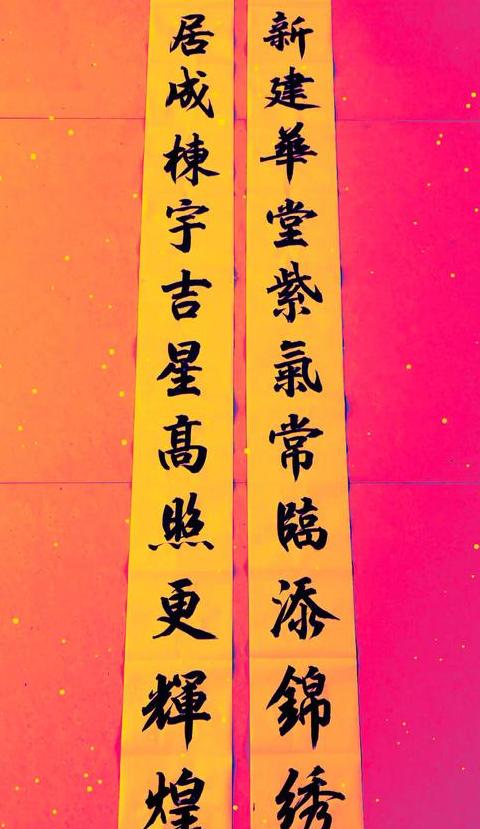 新建華堂紫氣常臨添錦綉
居成棟宇吉星高照更輝煌